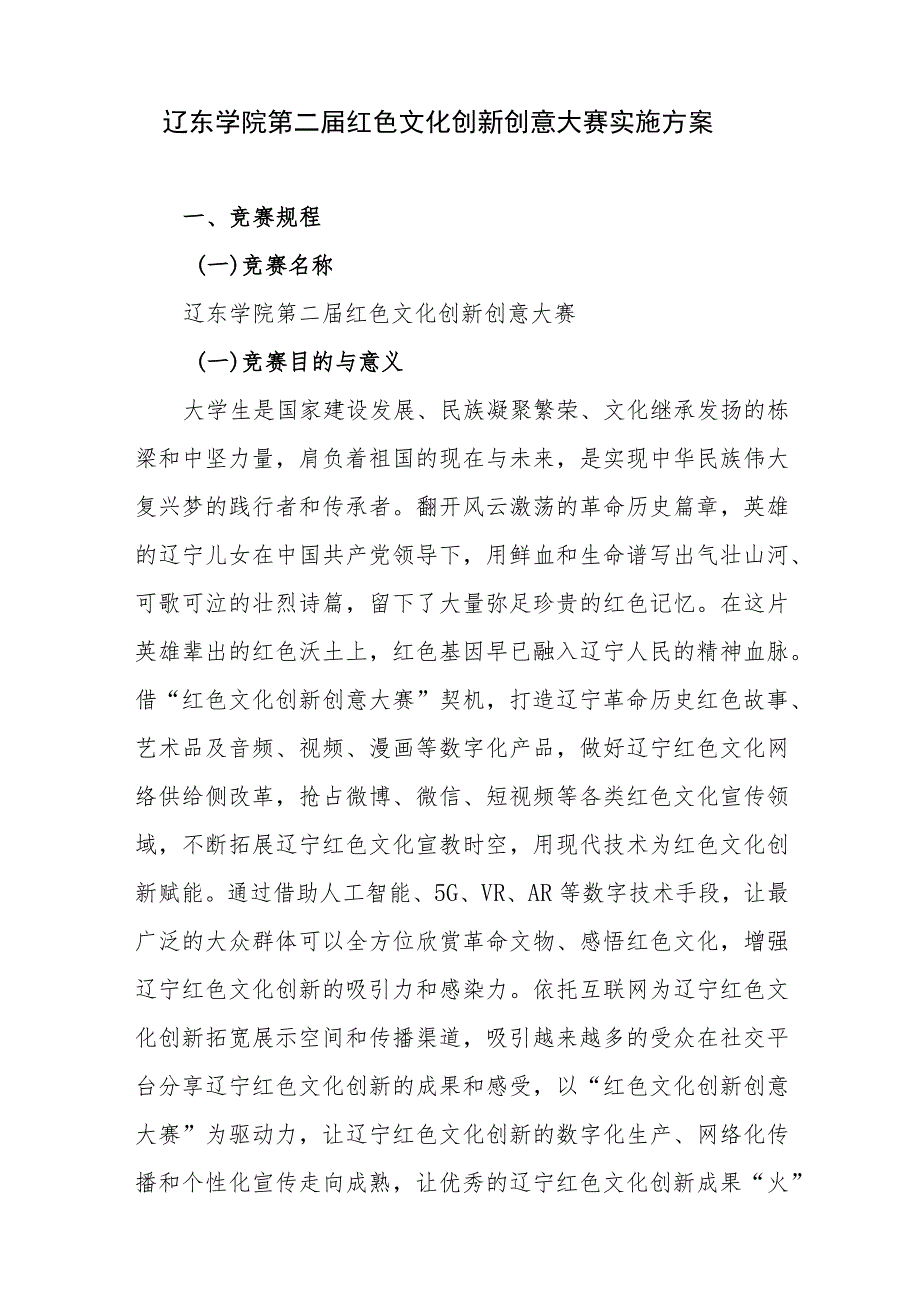 辽东学院第二届红色文化创新创意大赛实施方案
一、竞赛规程
(一)竞赛名称
辽东学院第二届红色文化创新创意大赛
(一)竞赛目的与意义
大学生是国家建设发展、民族凝聚繁荣、文化继承发扬的栋
梁和中坚力量，肩负着祖国的现在与未来，是实现中华民族伟大
复兴梦的践行者和传承者。翻开风云激荡的革命历史篇章，英雄
的辽宁儿女在中国共产党领导下，用鲜血和生命谱写出气壮山河、
可歌可泣的壮烈诗篇，留下了大量弥足珍贵的红色记忆。在这片
英雄辈出的红色沃土上，红色基因早已融入辽宁人民的精神血脉。
借“红色文化创新创意大赛”契机，打造辽宁革命历史红色故事、
艺术品及音频、视频、漫画等数字化产品，做好辽宁红色文化网
络供给侧改革，抢占微博、微信、短视频等各类红色文化宣传领
域，不断拓展辽宁红色文化宣教时空，用现代技术为红色文化创
新赋能。通过借助人工智能、5G、VR、AR 等数字技术手段，让最
广泛的大众群体可以全方位欣赏革命文物、感悟红色文化，增强
辽宁红色文化创新的吸引力和感染力。依托互联网为辽宁红色文
化创新拓宽展示空间和传播渠道，吸引越来越多的受众在社交平
台分享辽宁红色文化创新的成果和感受，以“红色文化创新创意
大赛”为驱动力，让辽宁红色文化创新的数字化生产、网络化传
播和个性化宣传走向成熟，让优秀的辽宁红色文化创新成果“火”